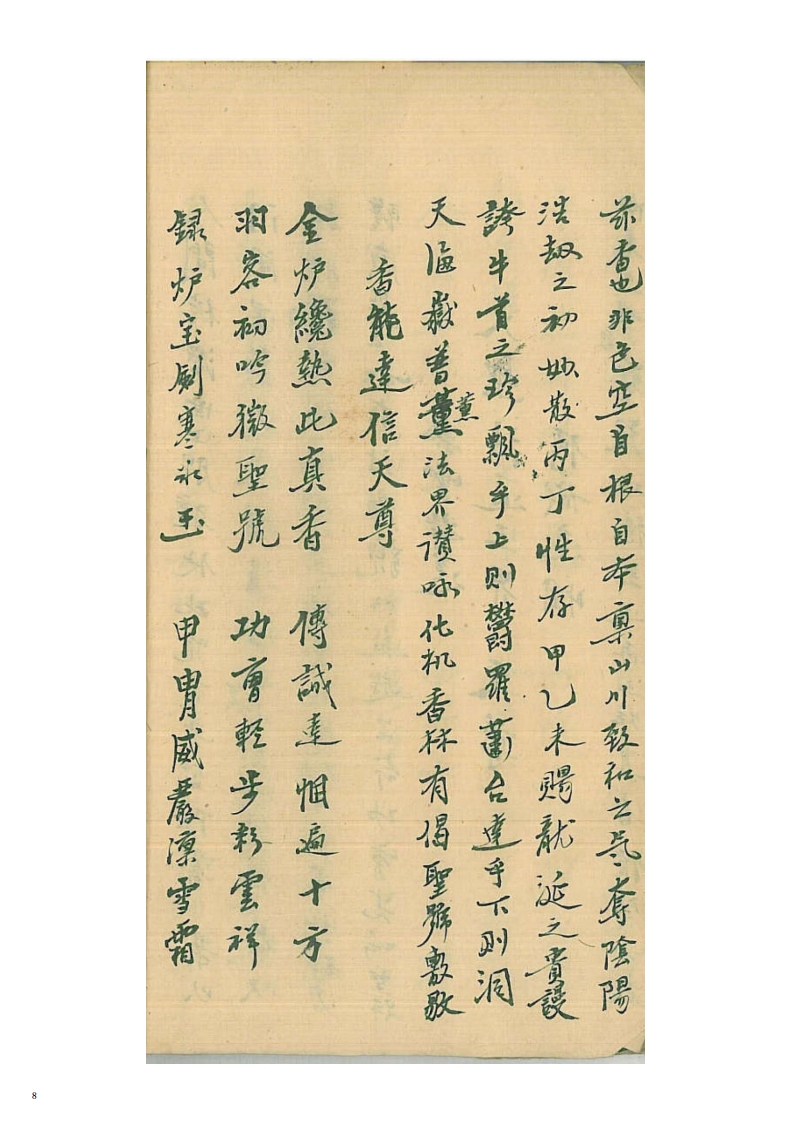 茲香也非色空自根自本稟山川致和之炁奪陰陽
浩劫之初妙散丙丁性存甲乙未賜龍涎之貴謾
誇牛首之珍飄乎上則欝羅蕭台達乎下則洞
天海嶽普薰薰法界讃咏化机香林有偈聖號敷敭
香能達信天尊
金炉纔熱此真香 傳誠達悃遍十方
羽客初吟微聖號 功曹輕步彩雲祥
録炉宝劍寒氷玉 甲冑威嚴凛雪霜
8